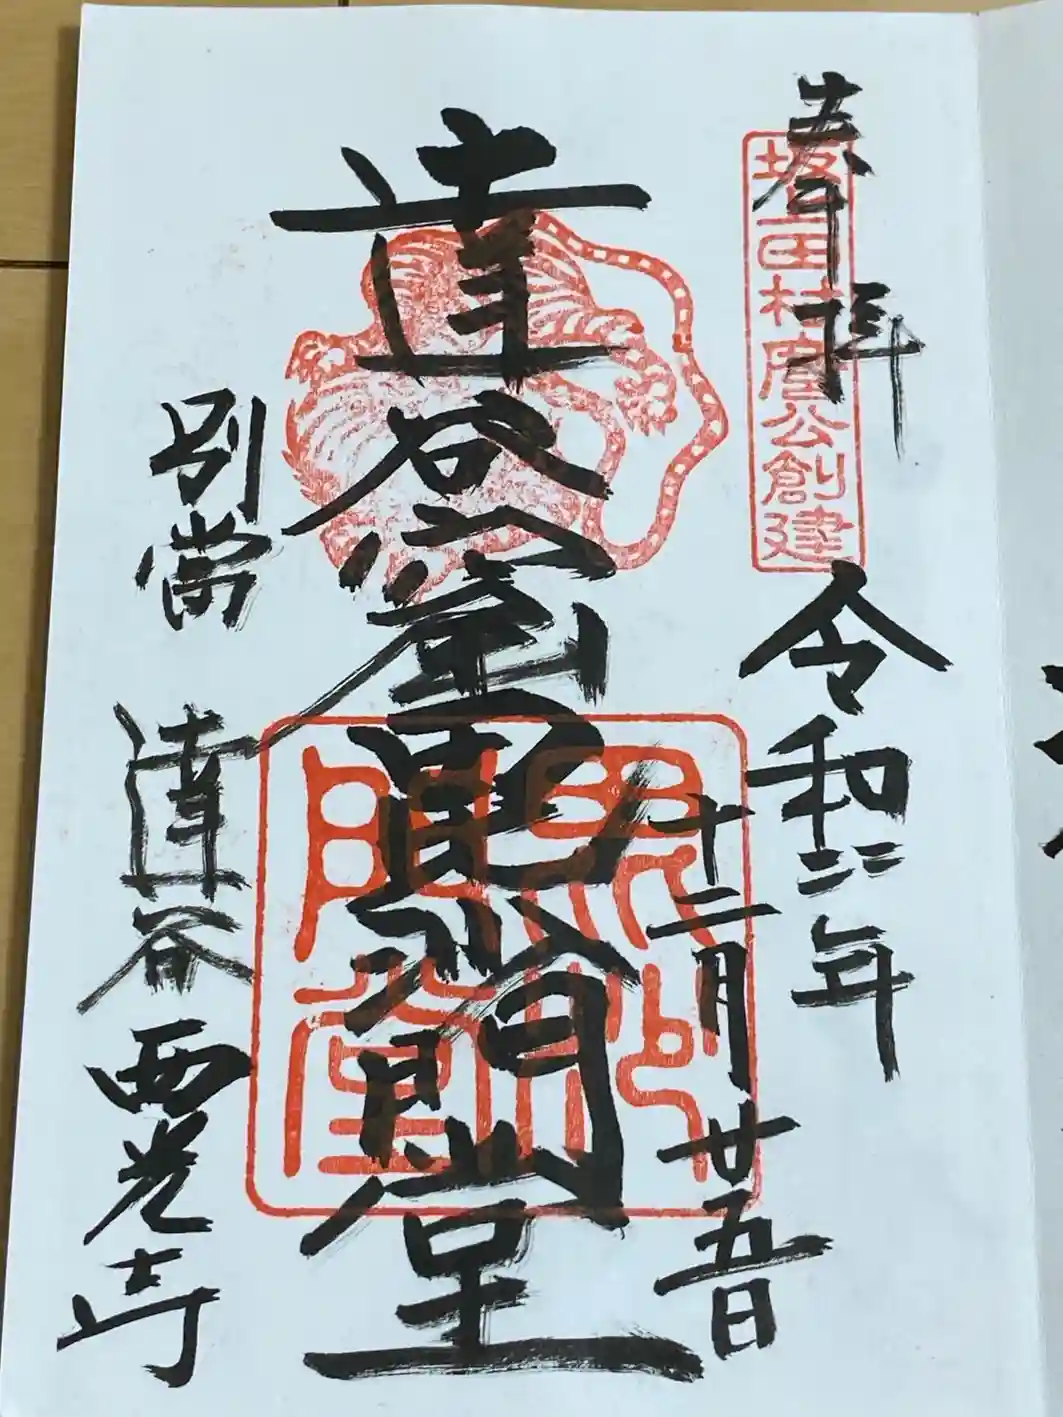 奉拝
坂上田村麿公創建
令和二二年
十二月廿五日
達谷窟毘沙門堂
毘沙門堂
別當
達谷西光寺